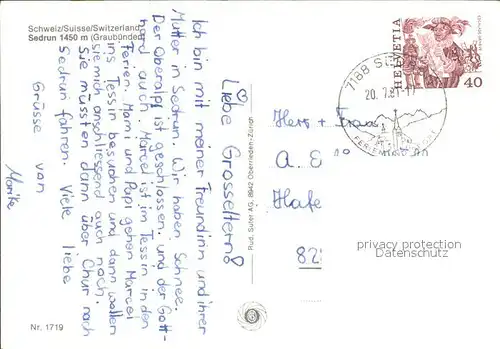 Schweiz/Suisse/Switzerland
Sedrun 1450 m (Graubünden)
Liebe Grosseltern!
Ich bin mit meiner Freundinn und ihrer
Mutter in Sedrun. Wir haben Schnee.
Der Oberalp ist geschlossen, und der Gott-
hard auch. Marcel ist im Tessin in den
Ferien. Mami und Papi gehen Marcel
ins Tessin besuchen und dann wollen
sie mich anschliessend auch noch.
Sie müssten dann über Chur nach
Sedrun fahren. Viele liebe
Grüsse von
Marika
Nr. 1719
Rud. Suter AG, 8942 Oberrieden-Zürich
7188 SEDRUN
20.7.81-17
HELVETIA
40
Herr + Frau
A. E
Hafe
82
privacy protection
watermark